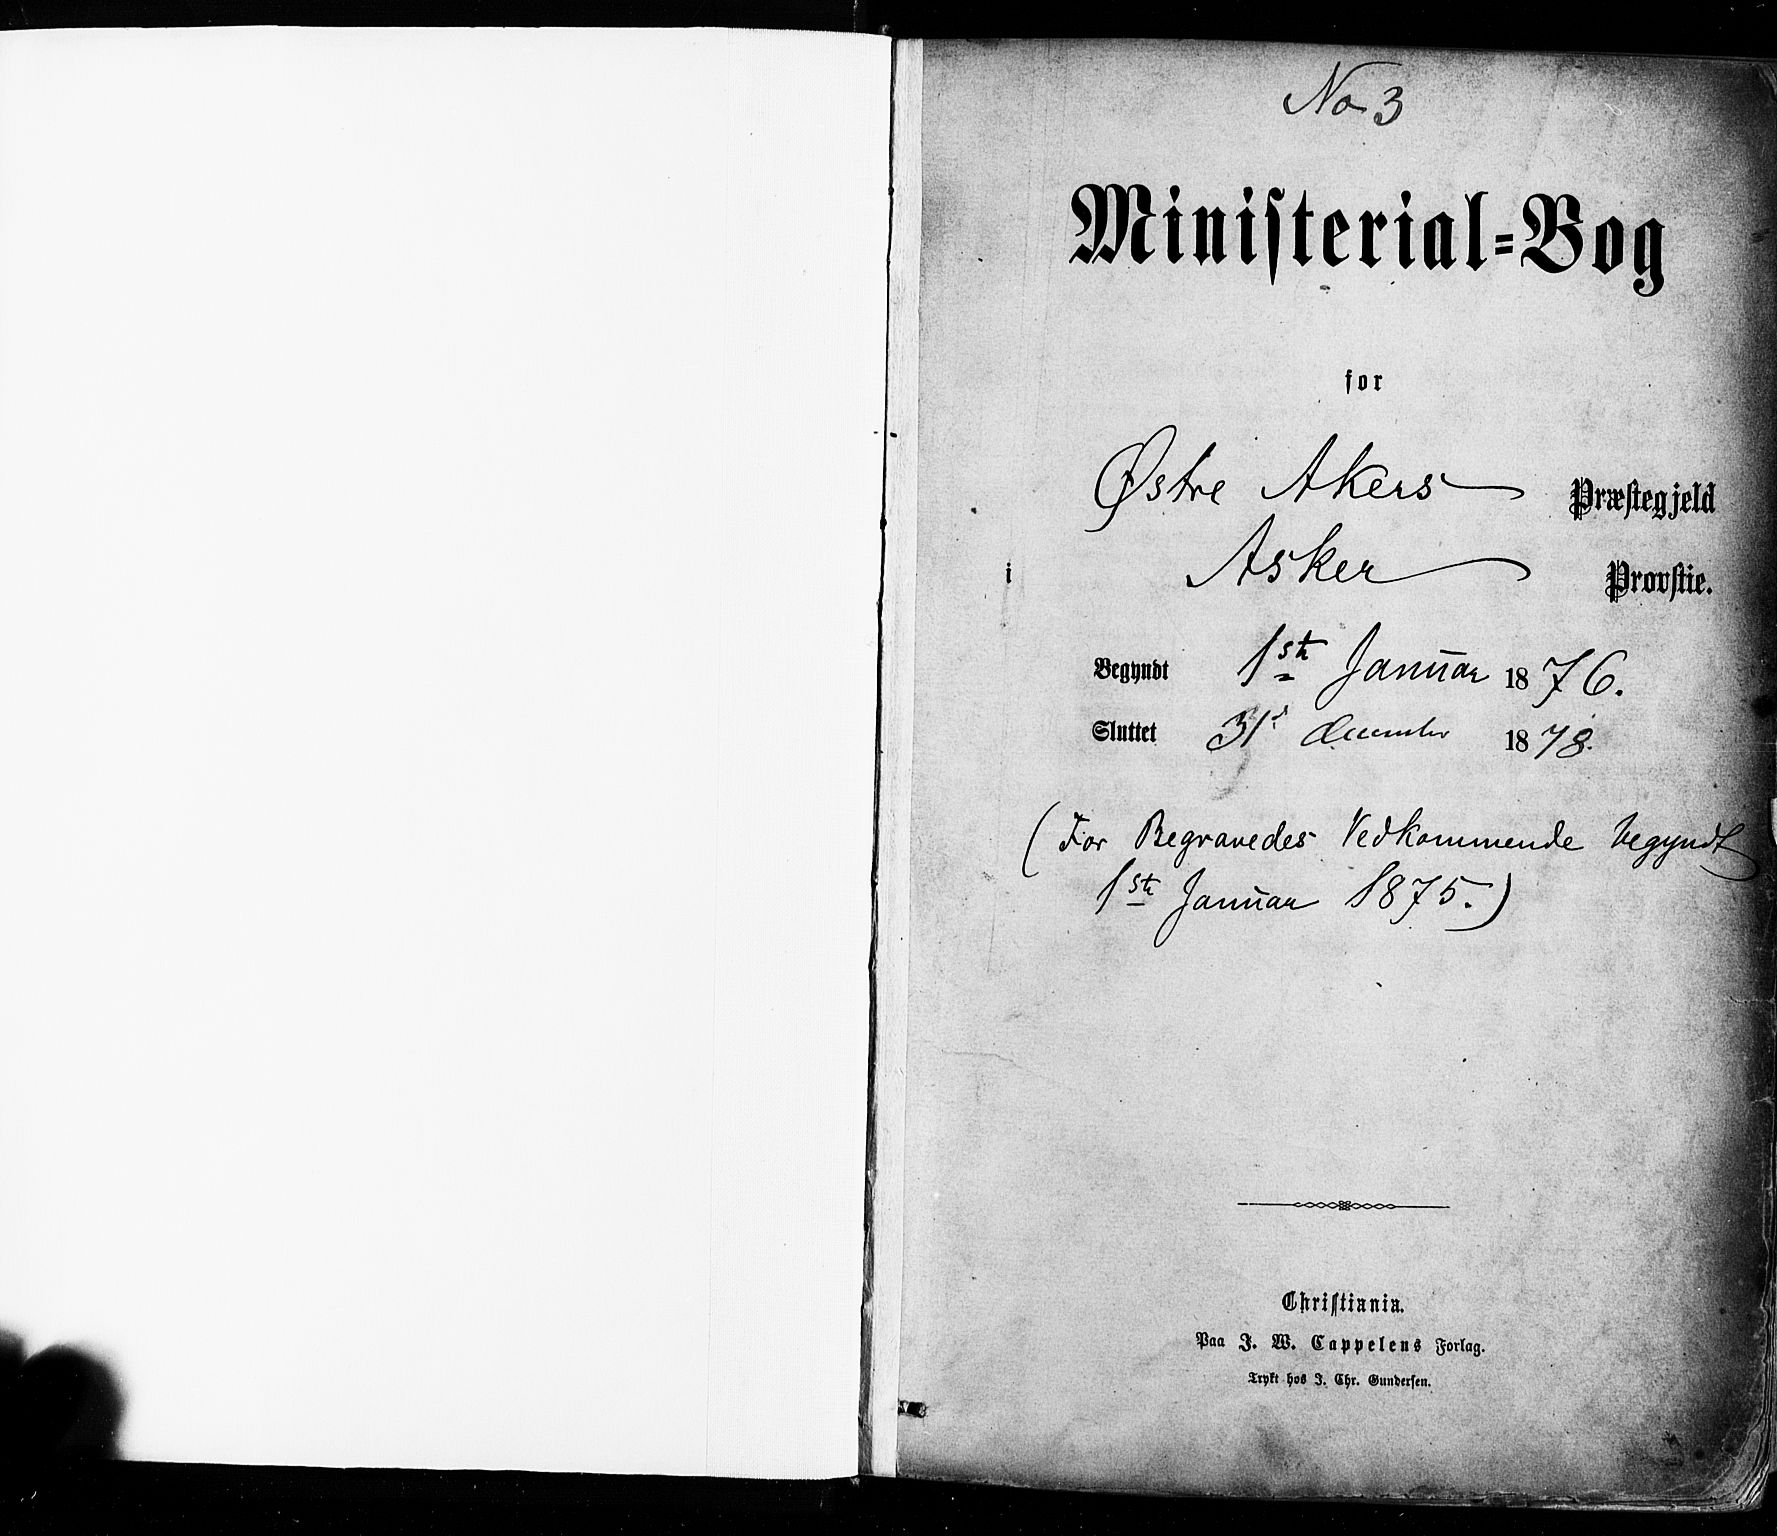 No 3
Ministerial-Bog
for
Østre Akers Præstegjeld
i Asker Provstie.
Begyndt 1ste Januar 1876.
Sluttet 31' december 1878.
(For Begravedes Vedkommende begyndt
1ste Januar 1875.)
Christiania.
Paa J. W. Cappelens Forlag.
Trykt hos J. Chr. Gundersen.